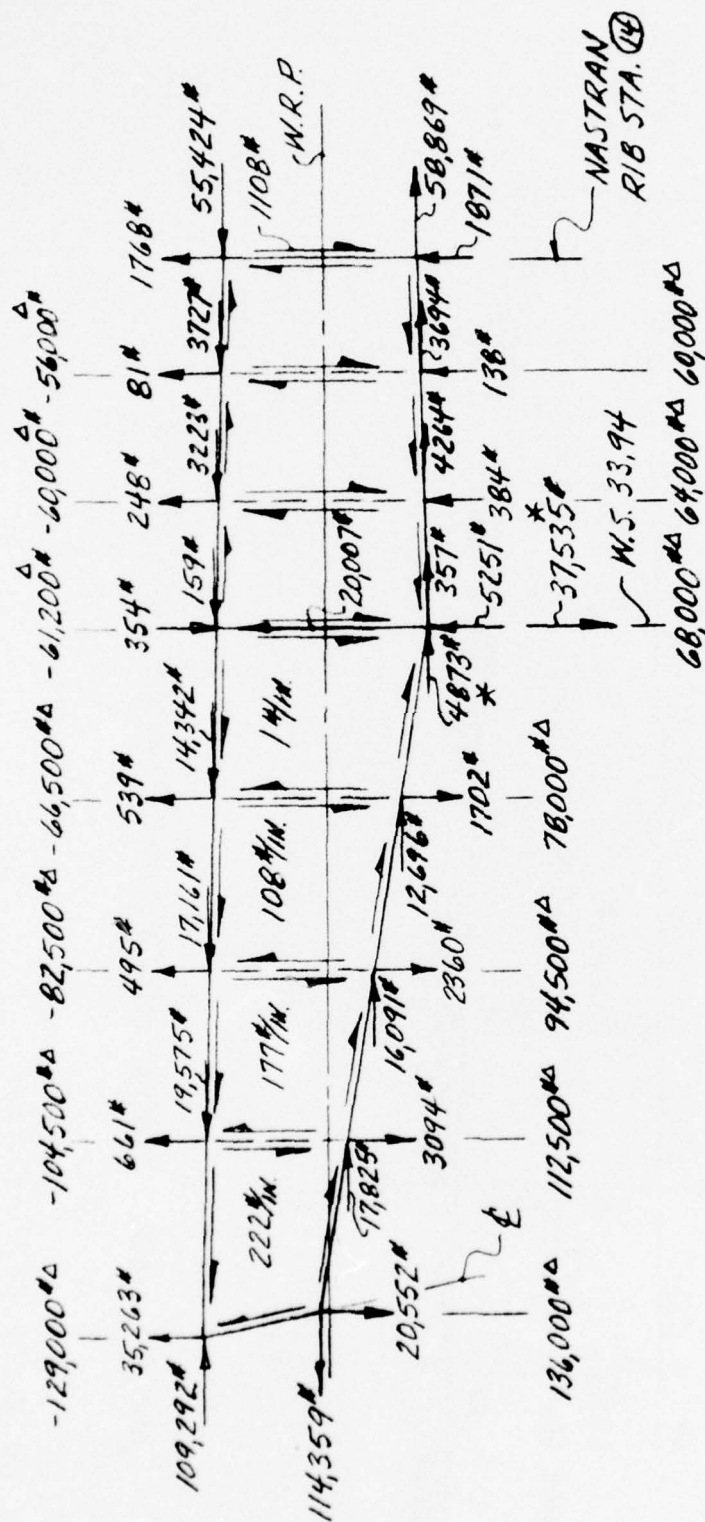 -129,000#Δ -104,500#Δ -82,500#Δ -66,500#Δ -61,200#Δ -60,000#Δ -56,000#Δ
35,263# 661# 495# 539# 354# 248# 81# 1768#
109,292# 19,575# 17,161# 14,342# 159# 3223# 3727# 55,424#
222#/IN. 177#/IN. 108#/IN. 1#/IN. 20,007# 1108#
W.R.P.
114,359# 17,825# 16,091# 12,696# 4873# * 357# 4264# 3694# 58,869#
20,552# 3094# 2360# 1702# 5251# 384# 138# 1871#
37,535# *
℄
W.S. 33.94
NASTRAN
RIB STA. 14
136,000#Δ 112,500#Δ 94,500#Δ 78,000#Δ 68,000#Δ 64,000#Δ 60,000#Δ